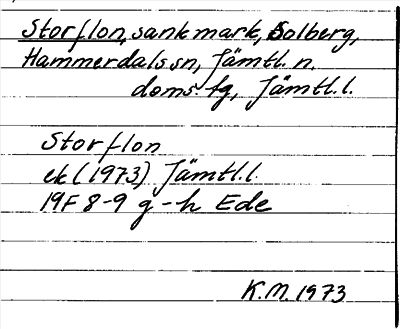 Storflon, sank mark, Solberg,
Hammerdals sn, Jämtl. n.
doms fg, Jämtl. l.
Storflon
ek (1973) Jämtl. l.
19F 8-9 g-h Ede
K.M. 1973